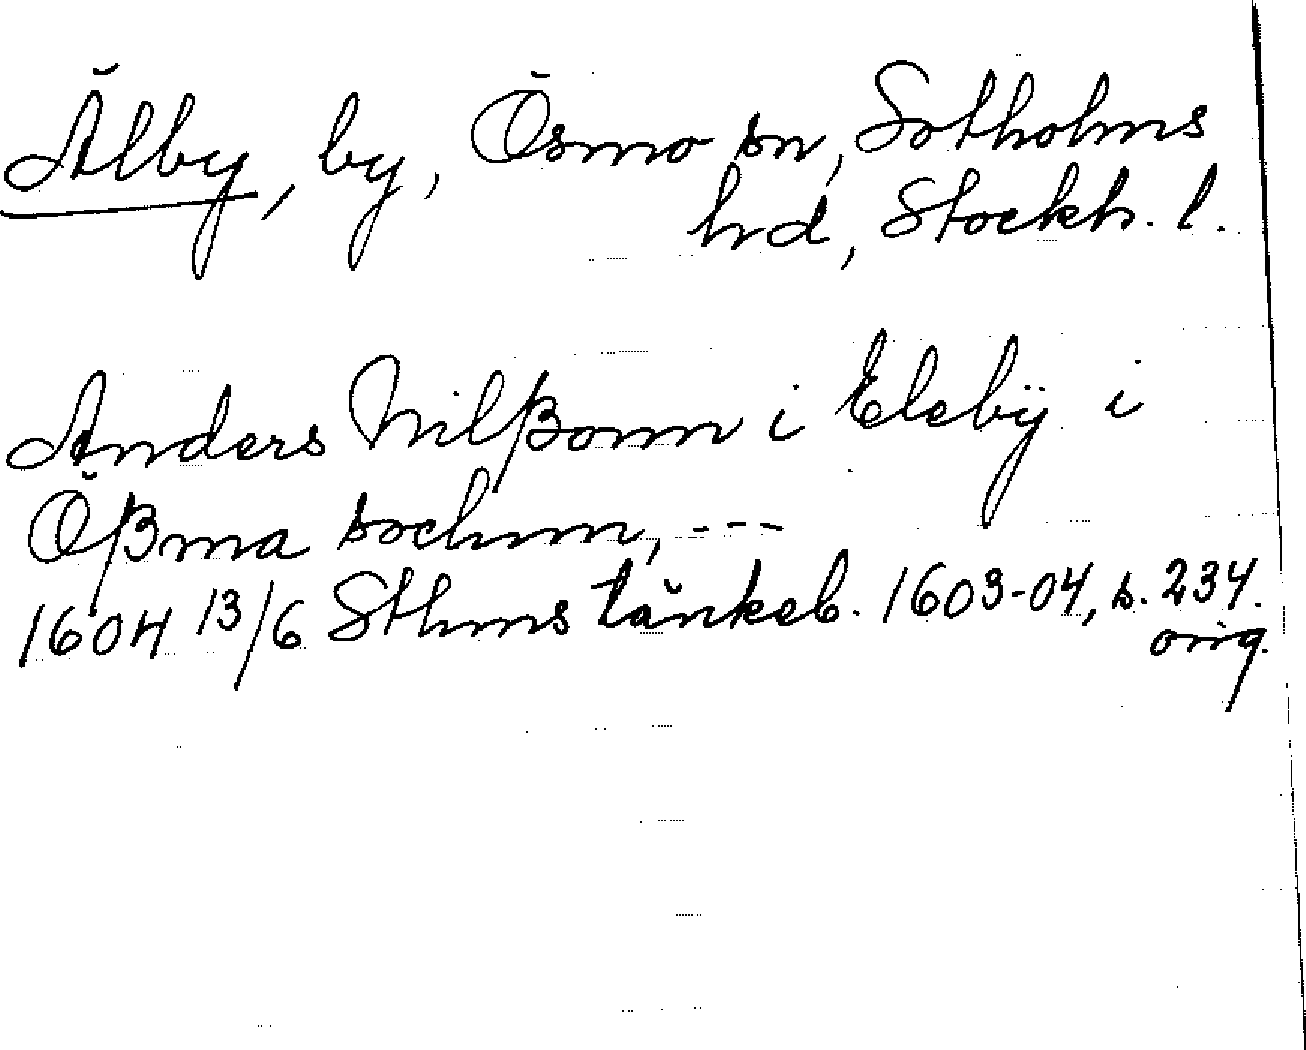 Älby, by, Ösmo sn, Sotholms
hd, Stockh. l.
Anders Nilßonn i Eleby̋ i
Ößma sochnn, ---
1604 13/6 Sthms tänkeb. 1603-04, s. 234.
orig.